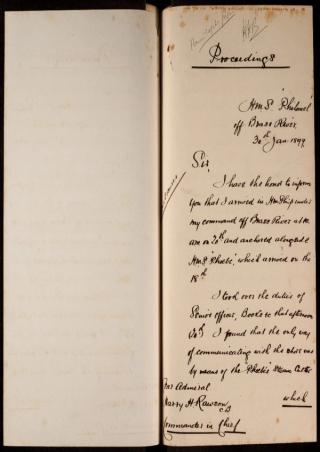 H&B
Proceedings
H.M.S. "Philomel"
off Brass River
30th Jan. 1897
Sir,
I have the honor to inform
you that I arrived in HM Ship under
my command off Brass River at
on 20th and anchored alongside
H.M.S. "Phoebe", which arrived on the
18th
I took over the duties of
Senior Officer, Boats that afternoon
(20th) I found that the only way
of communicating with the shore was
by means of the "Phoebe's" Steam Cutter
which
Rear Admiral
Harry H. Rawson
CB
Commander in Chief